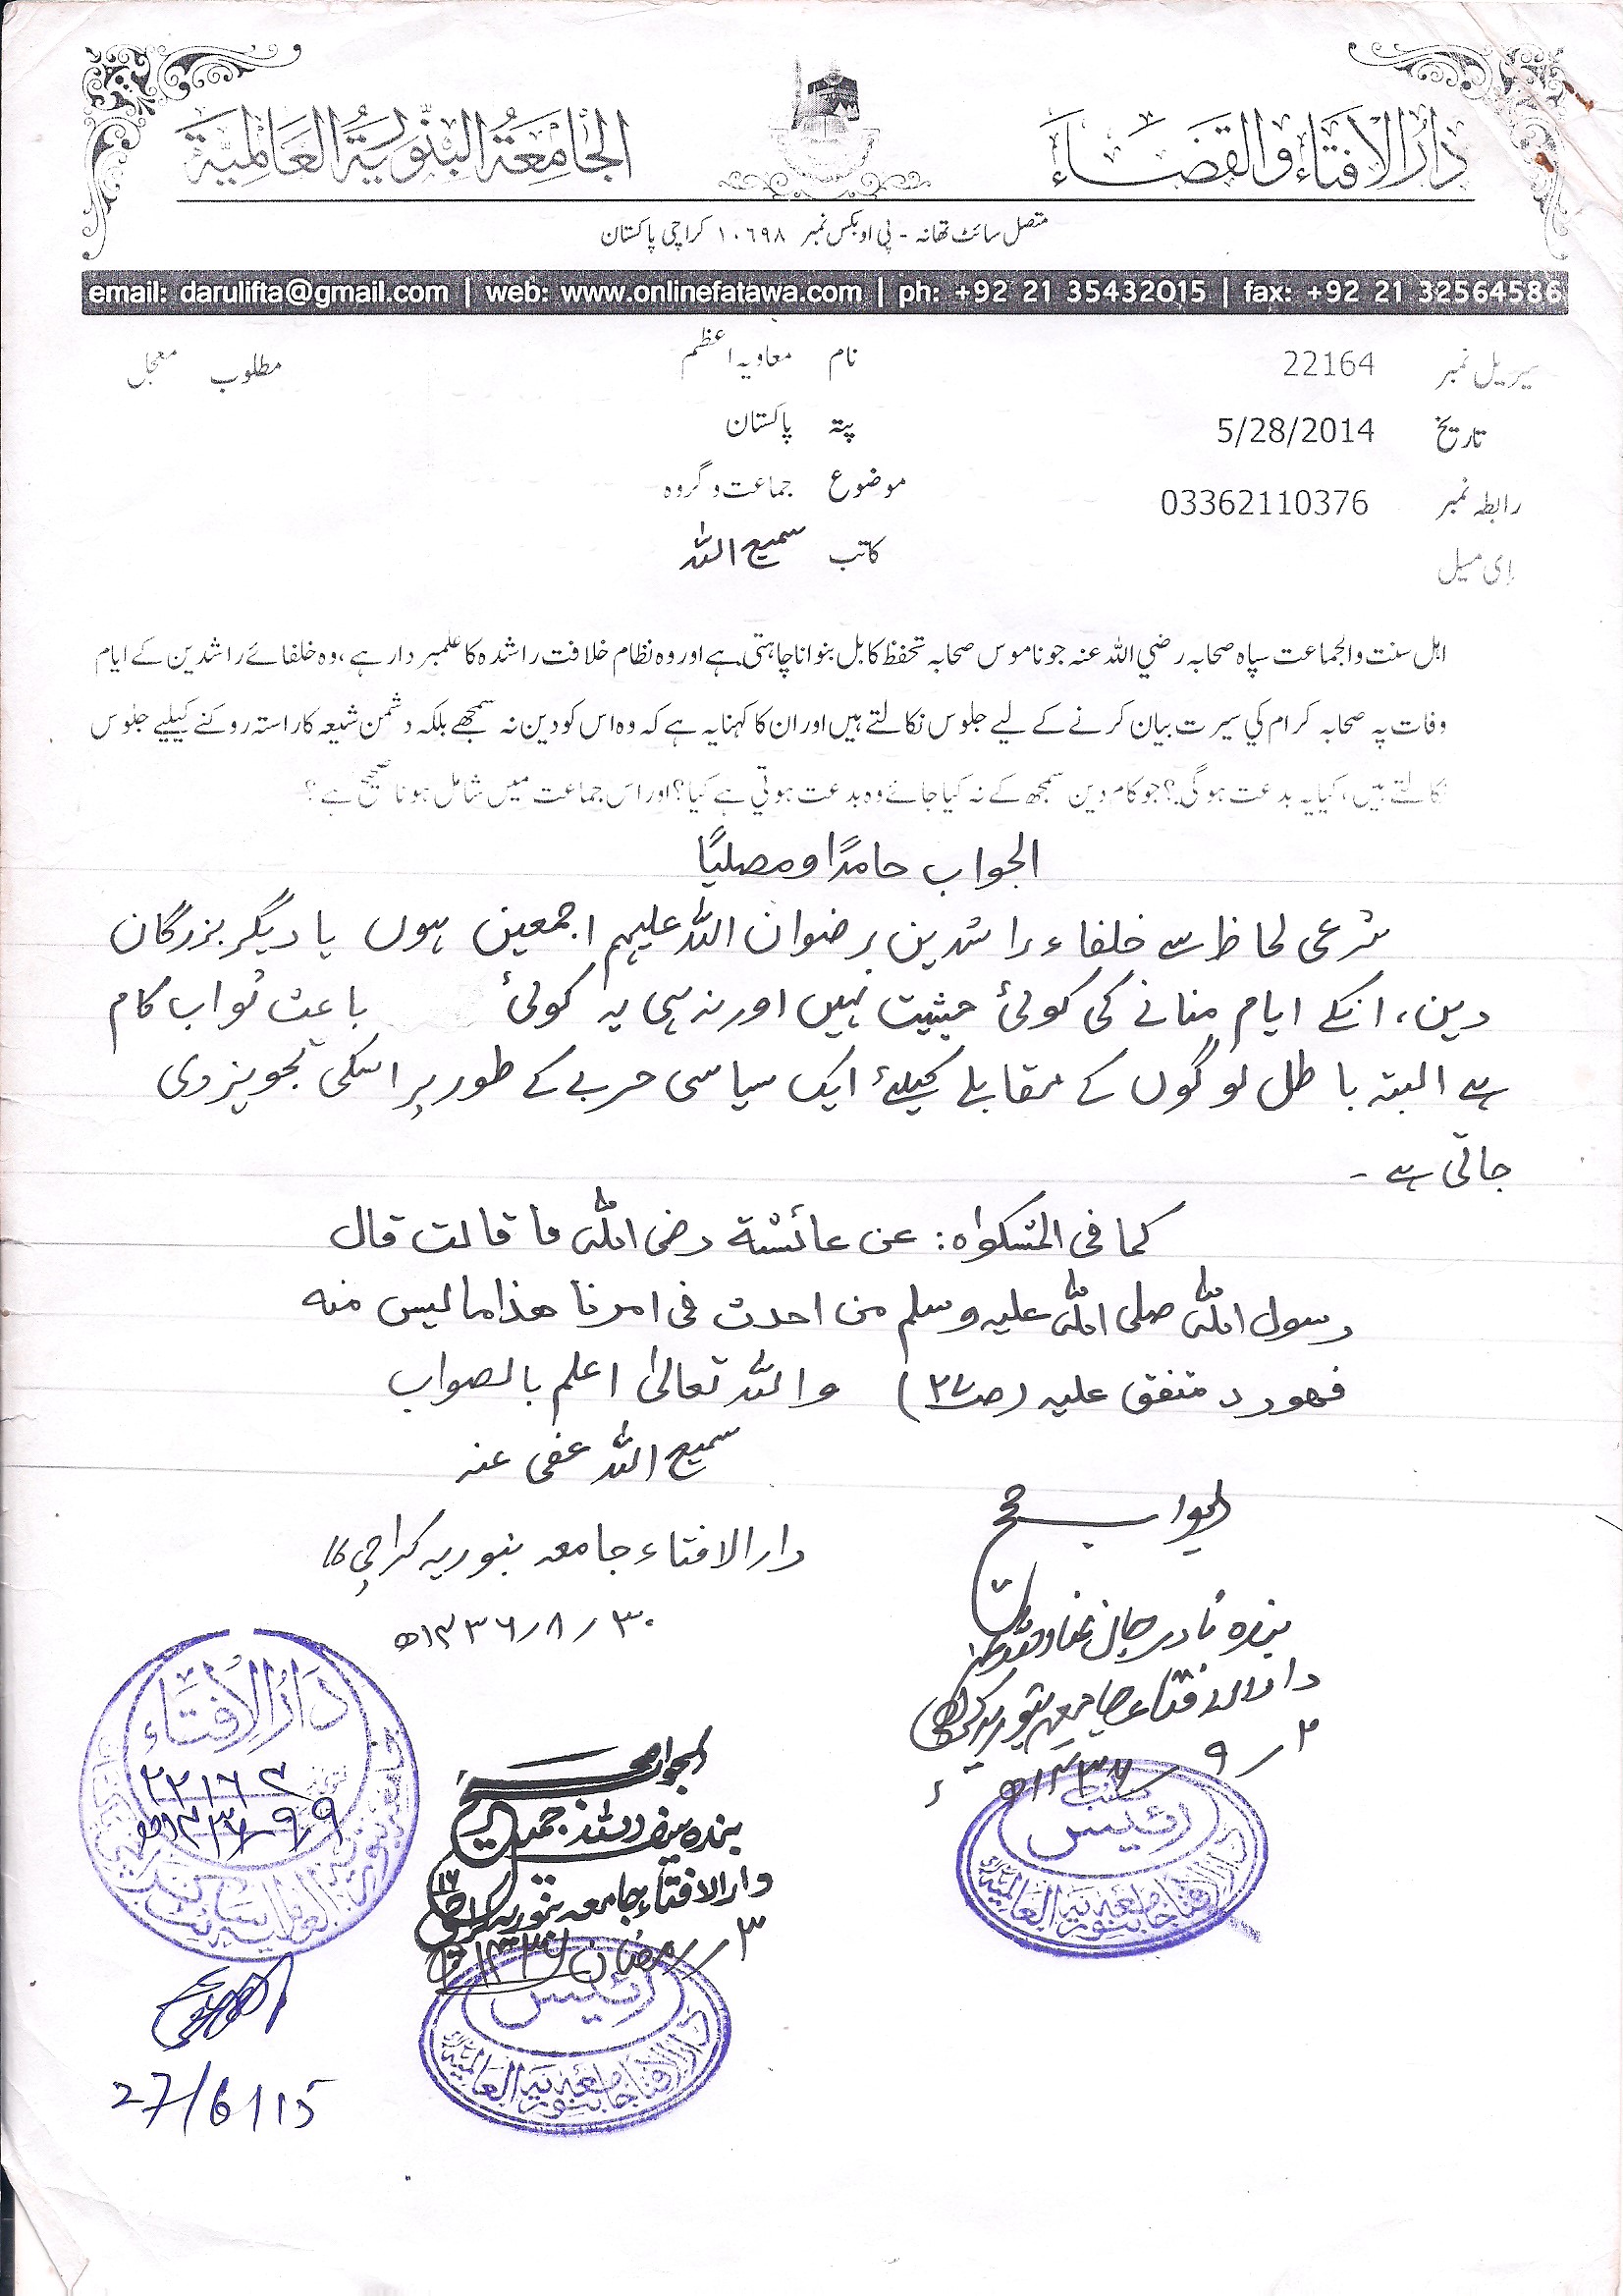 دار الافتاء والقضاء
الجامعة البنورية العالمية
متصل سائٹ تھانہ - پی او بکس نمبر ۱۰۶۹۸ کراچی پاکستان
email: darulifta@gmail.com | web: www.onlinefatawa.com | ph: +92 21 35432015 | fax: +92 21 32564586
سیریل نمبر 22164 نام معاویہ اعظم مطلوب معجل
تاریخ 5/28/2014 پتہ پاکستان
رابطہ نمبر 03362110376 موضوع جماعت و گروہ
ای میل کاتب سمیع اللہ
اہل سنت والجماعت سپاہ صحابہ رضي اللہ عنہ جو ناموس صحابہ تحفظ کا بل بنوانا چاہتی ہے اور وہ نظام خلافت راشدہ کا علمبردار ہے، وہ خلفائے راشدین کے ایام
وفات پہ صحابہ کرام کي سيرت بیان کرنے کے لیے جلوس نکالتے ہیں اور ان کا کہنا یہ ہے کہ وہ اس کو دین نہ سمجھے بلکہ دشمن شیعہ کا راستہ روکنے کیلیے جلوس
نکالتے ہیں، کیا یہ بدعت ہوگی؟ جو کام دین سمجھ کے نہ کیا جائے وہ بدعت ہوتي ہے کیا؟ اور اس جماعت میں شامل ہونا صحیح ہے؟
الجواب حامدًا ومصلیًا
شرعی لحاظ سے خلفاء راشدین رضوان اللہ علیہم اجمعین ہوں یا دیگر بزرگان
دین، انکے ایام منانے کی کوئی حیثیت نہیں اور نہ ہی یہ کوئی باعث ثواب کام
ہے البتہ باطل لوگوں کے مقابلے کیلئے ایک سیاسی حربے کے طور پر اسکی تجویز دی
جاتی ہے ۔
کما فی المشکوٰہ: عن عائشة رضی اللہ عنہا قالت قال
رسول اللہ صلی اللہ علیہ وسلم من احدث فی امرنا ھذا مالیس منه
فھو رد متفق علیہ (ص۲۷) واللہ تعالیٰ اعلم بالصواب
سمیع اللہ عفی عنہ
دار الافتاء جامعہ بنوریہ کراچی ۱۶
۳۰/۸/۱۴۳۶ھ
الجواب صحیح
بندہ نادر جان
دار الافتاء جامعہ بنوریہ کراچی
۲/۹/۱۴۳۶ھ
رئیس
دار الافتاء جامعہ بنوریہ العالمیہ
الجواب صحیح
بندہ سیف اللہ جمیل
دار الافتاء جامعہ بنوریہ کراچی ۱۶
۳ رمضان ۱۴۳۶ھ
رئیس
دار الافتاء جامعہ بنوریہ العالمیہ
دار الافتاء
۲۲۱۶۴
۹/۹/۱۴۳۶ھ
27/6/15